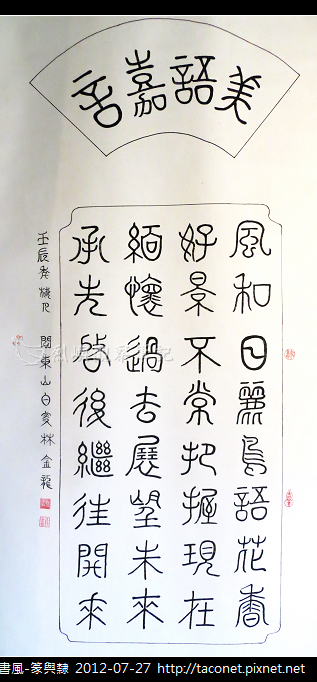 美語嘉言
風和日麗鳥語花香
好景不常把握現在
緬懷過去展望未來
承先啟後繼往開來
壬辰年月 閩東山白叟林金龍
書風-篆與隸 2012-07-27 http://taconet.pixnet.net